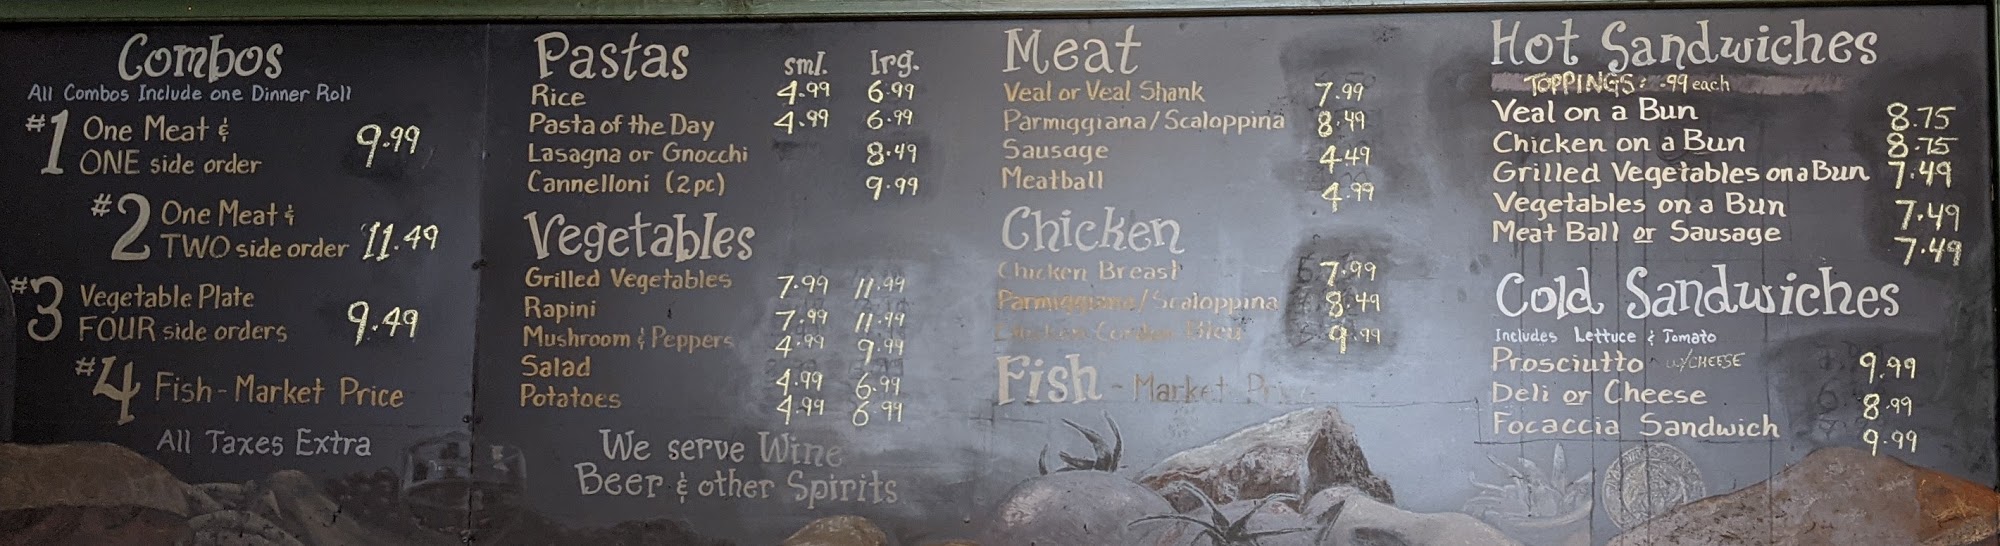 Combos
All Combos Include one Dinner Roll
#1 One Meat & 9.99
ONE side order
#2 One Meat &
TWO side order 11.49
#3 Vegetable Plate
FOUR side orders 9.49
#4 Fish - Market Price
All Taxes Extra
Pastas sml. lrg.
Rice 4.99 6.99
Pasta of the Day 4.99 6.99
Lasagna or Gnocchi 8.49
Cannelloni (2pc) 9.99
Vegetables
Grilled Vegetables 7.99 11.99
Rapini 7.99 11.99
Mushroom & Peppers 4.99 9.99
Salad 4.99 6.99
Potatoes 4.99 6.99
We serve Wine
Beer & other Spirits
Meat
Veal or Veal Shank 7.99
Parmiggiana/Scaloppina 8.49
Sausage 4.49
Meatball 4.99
Chicken
Chicken Breast 7.99
Parmiggiana/Scaloppina 8.49
Chicken Cordon Bleu 9.99
Fish - Market Price
Hot Sandwiches
TOPPINGS: .99 each
Veal on a Bun 8.75
Chicken on a Bun 8.75
Grilled Vegetables on a Bun 7.49
Vegetables on a Bun 7.49
Meat Ball or Sausage 7.49
Cold Sandwiches
Includes Lettuce & Tomato
Prosciutto w/CHEESE 9.99
Deli or Cheese 8.99
Focaccia Sandwich 9.99